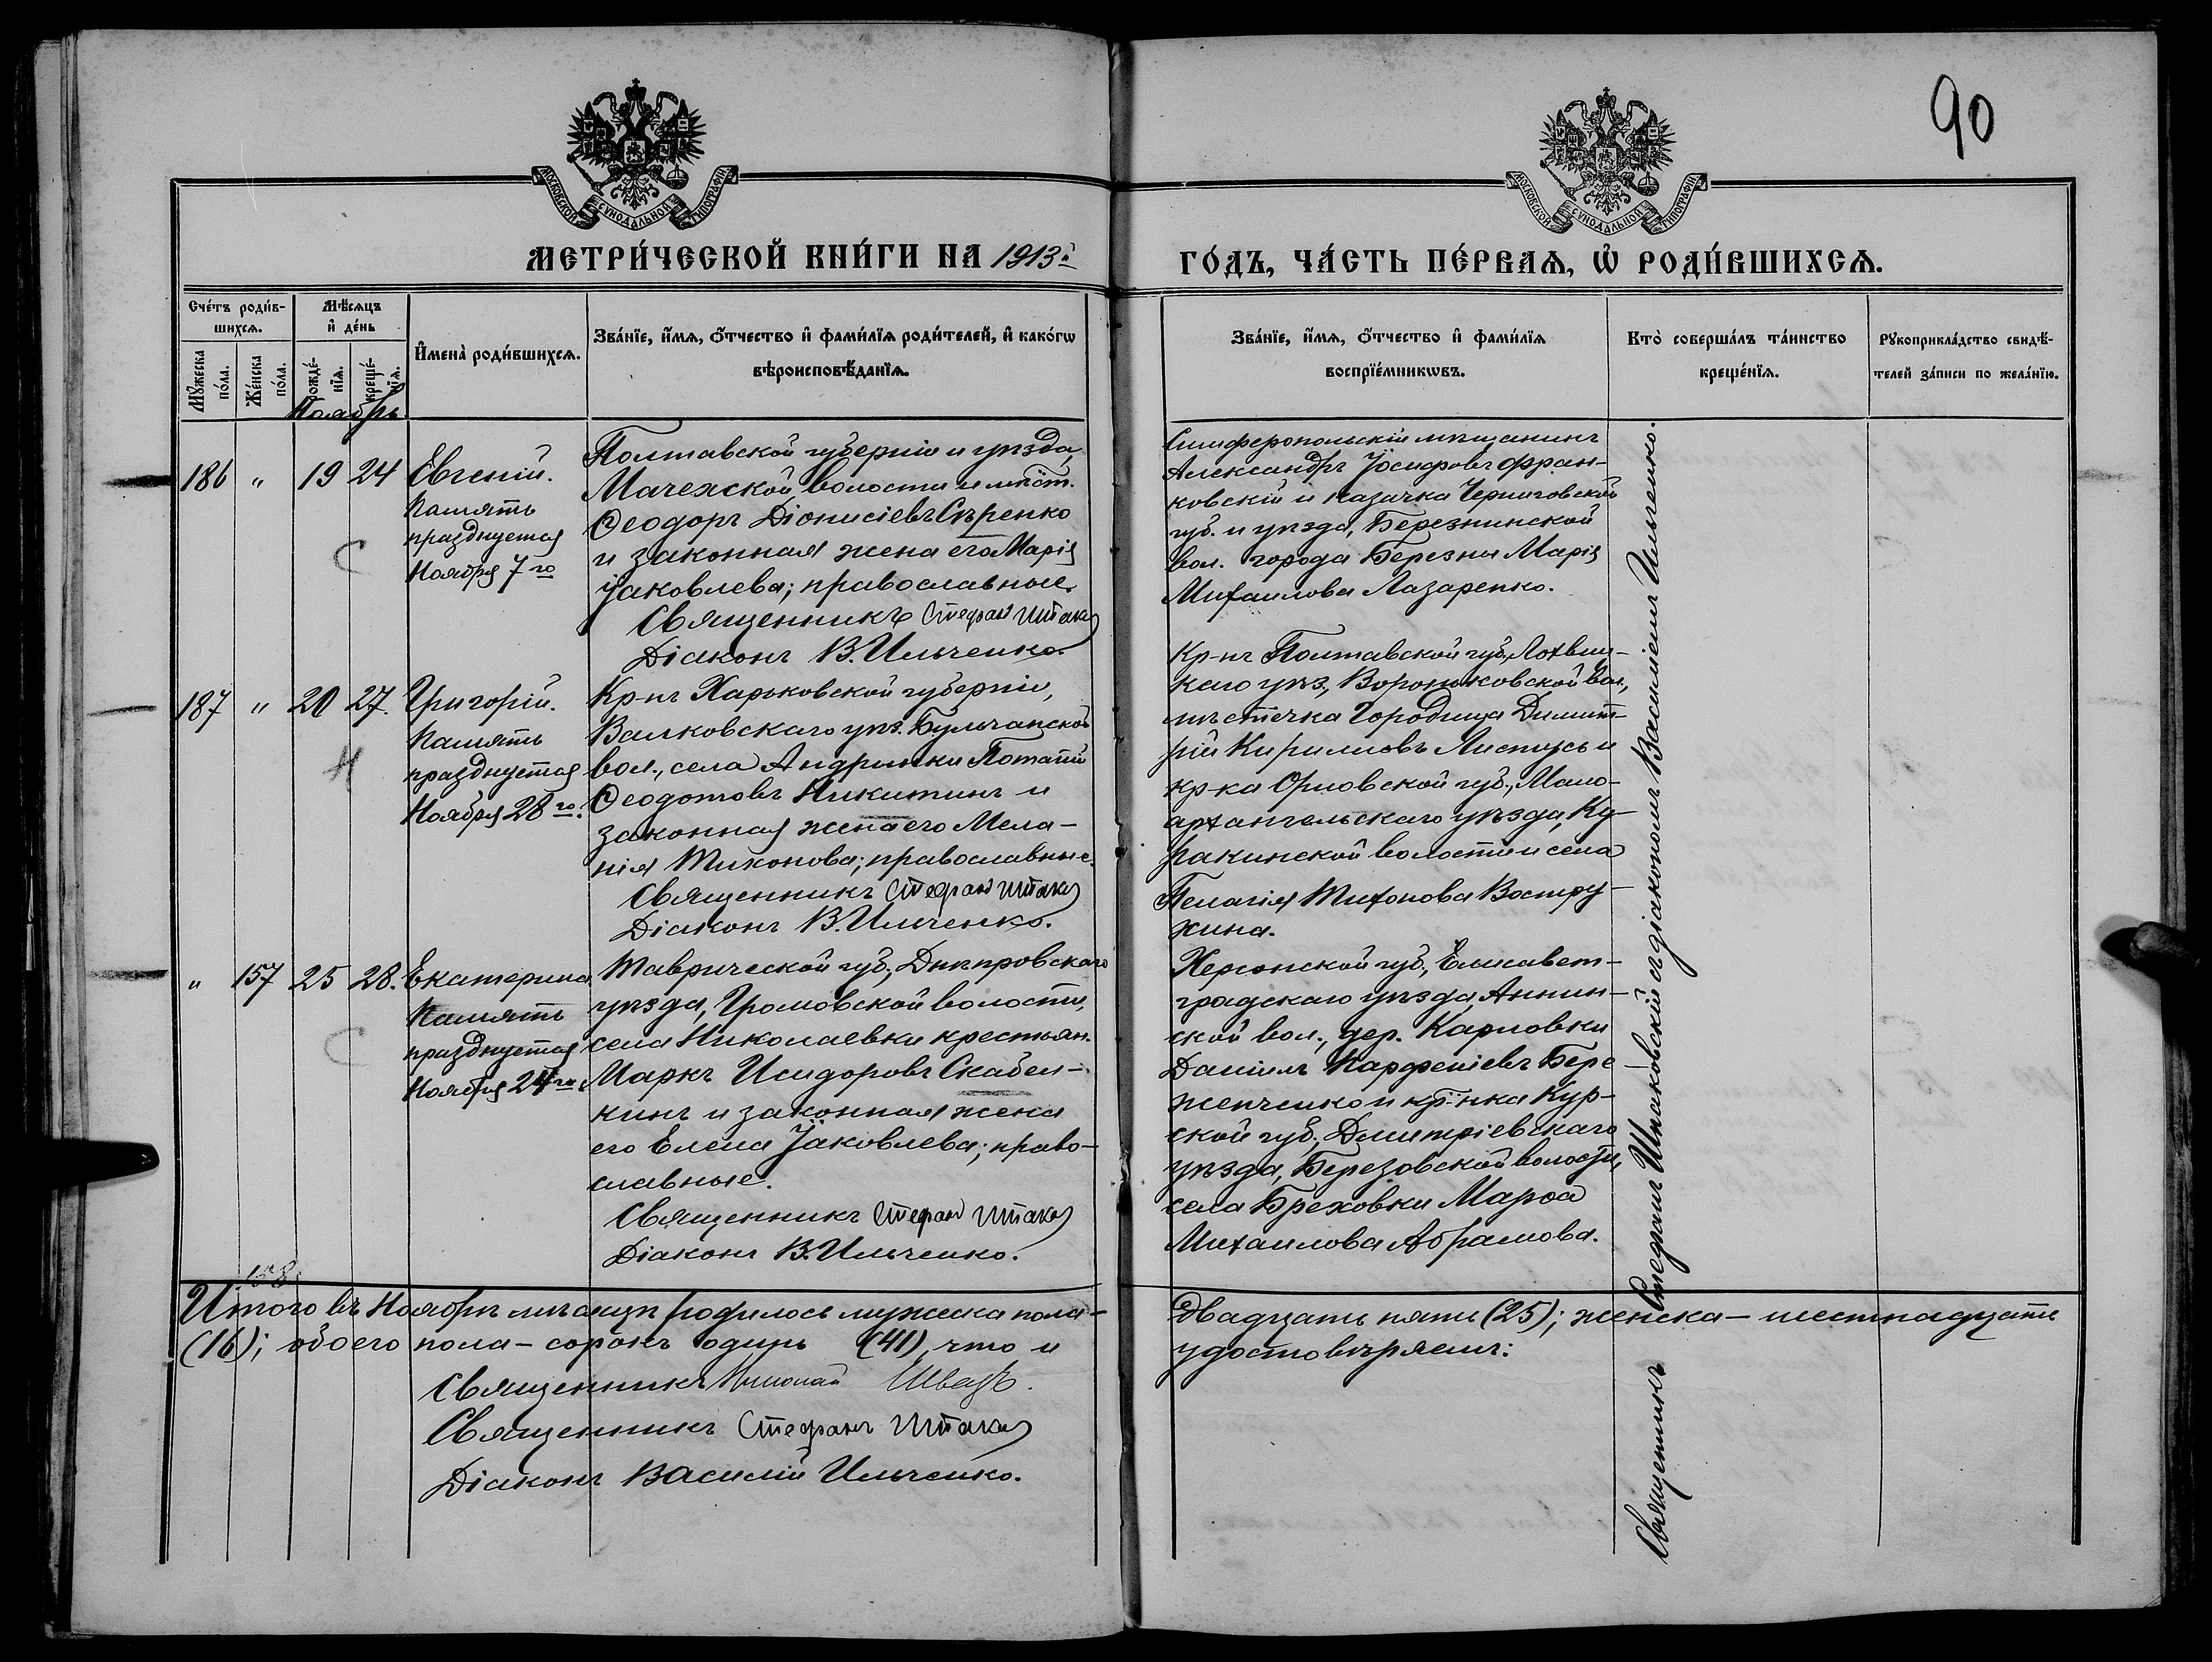 90
МОСКОВСКОЙ СУНОДАЛЬНОЙ ТИПОГРАФІИ
МОСКОВСКОЙ СУНОДАЛЬНОЙ ТИПОГРАФІИ
МЕТРИ́ЧЕСКОЙ КНИ́ГИ НА 1913й
ГО́ДЪ, ЧА́СТЬ ПЕ́РВАѦ, Ѡ҆ РОДИ́ВШИХСѦ.
Сче́тъ роди́в-
шихсѧ.
Мꙋ́жеска
по́ла.
Же́нска
по́ла.
Мѣ́сѧцъ
и҆ де́нь
рожде́-
нїѧ.
креще́-
нїѧ.
И҆мена̀ роди́вшихсѧ.
Зва́нїе, и҆́мѧ, ѻ҆́тчество и҆ фами́лїѧ роди́телей, и҆ како́гѡ
вѣроисповѣ́данїѧ.
Зва́нїе, и҆́мѧ, ѻ҆́тчество и҆ фами́лїѧ
воспрїе́мникѡвъ.
Кто̀ соверша́лъ та́инство
креще́нїѧ.
Рꙋкоприкла́дство свидѣ́-
телей за́писи по жела́нїю.
Ноябрь
186 " 19 24
Евгеній.
Память
празднуется
Ноября 7го
С
Полтавской губерніи и уѣзда,
Мачехской волости и мѣст.
Ѳеодоръ Діонисіевъ Сѣренко
и законная жена его Марія
Іаковлева; православные.
Священникъ Стефанъ Шпак
Діаконъ В. Ильченко.
Симферопольскій мѣщанинъ
Александръ Іосифовъ Фран-
ковскій и казачка Черниговской
губ. и уѣзда, Березнинской
вол. города Березны Марія
Михаилова Лазаренко.
187 " 20 27.
Григорій.
Память
празднуется
Ноября 28го.
Н
Кр-нъ Харьковской губерніи,
Валковскаго уѣз.
вол., села Андреевки Потапій
Ѳеодотовъ Никитинъ и
законная жена его Мела-
нія Тихонова; православные.
Священникъ Стефанъ Шпак
Діаконъ В. Ильченко.
Кр-нъ Полтавской губ., Лохвиц-
каго уѣз., Вороньковской вол.,
мѣстечка Городища Димит-
рій Кириловъ и
кр-ка Орловской губ., Мало-
архангельскаго уѣзда, Ку-
ракинской волости и села
Пелагія Тихонова Востру-
хина.
" 157 25 28.
Екатерина
Память
празднуется
Ноября 24го
С
Таврической губ., Днѣпровскаго
уѣзда, Громовской волости,
села Николаевки крестьян.
Маркъ Исидоровъ Скабел-
кинъ и законная жена
его Елена Іаковлева; право-
славные.
Священникъ Стефанъ Шпак
Діаконъ В. Ильченко.
Херсонской губ., Елисавет-
градскаго уѣзда, Аннин-
ской вол., дер. Карловки
Даніилъ Парфеніевъ Бере-
женченко и кр-нка Кур-
ской губ., Дмитріевскаго
уѣзда, Березовской волости,
села Бреховки Марѳа
Михаилова Абрамова.
Священникъ Стефанъ Шпаковскій съ діакономъ Василіемъ Ильченко.
158
Итого въ Ноябрѣ мѣсяцѣ родилось мужеска пола-
двадцать пять (25); женска - шестнадцать
(16); обоего пола - сорокъ одинъ (41), что и
удостовѣряемъ:
Священникъ Николай Швецъ.
Священникъ Стефанъ Шпак
Діаконъ Василій Ильченко.